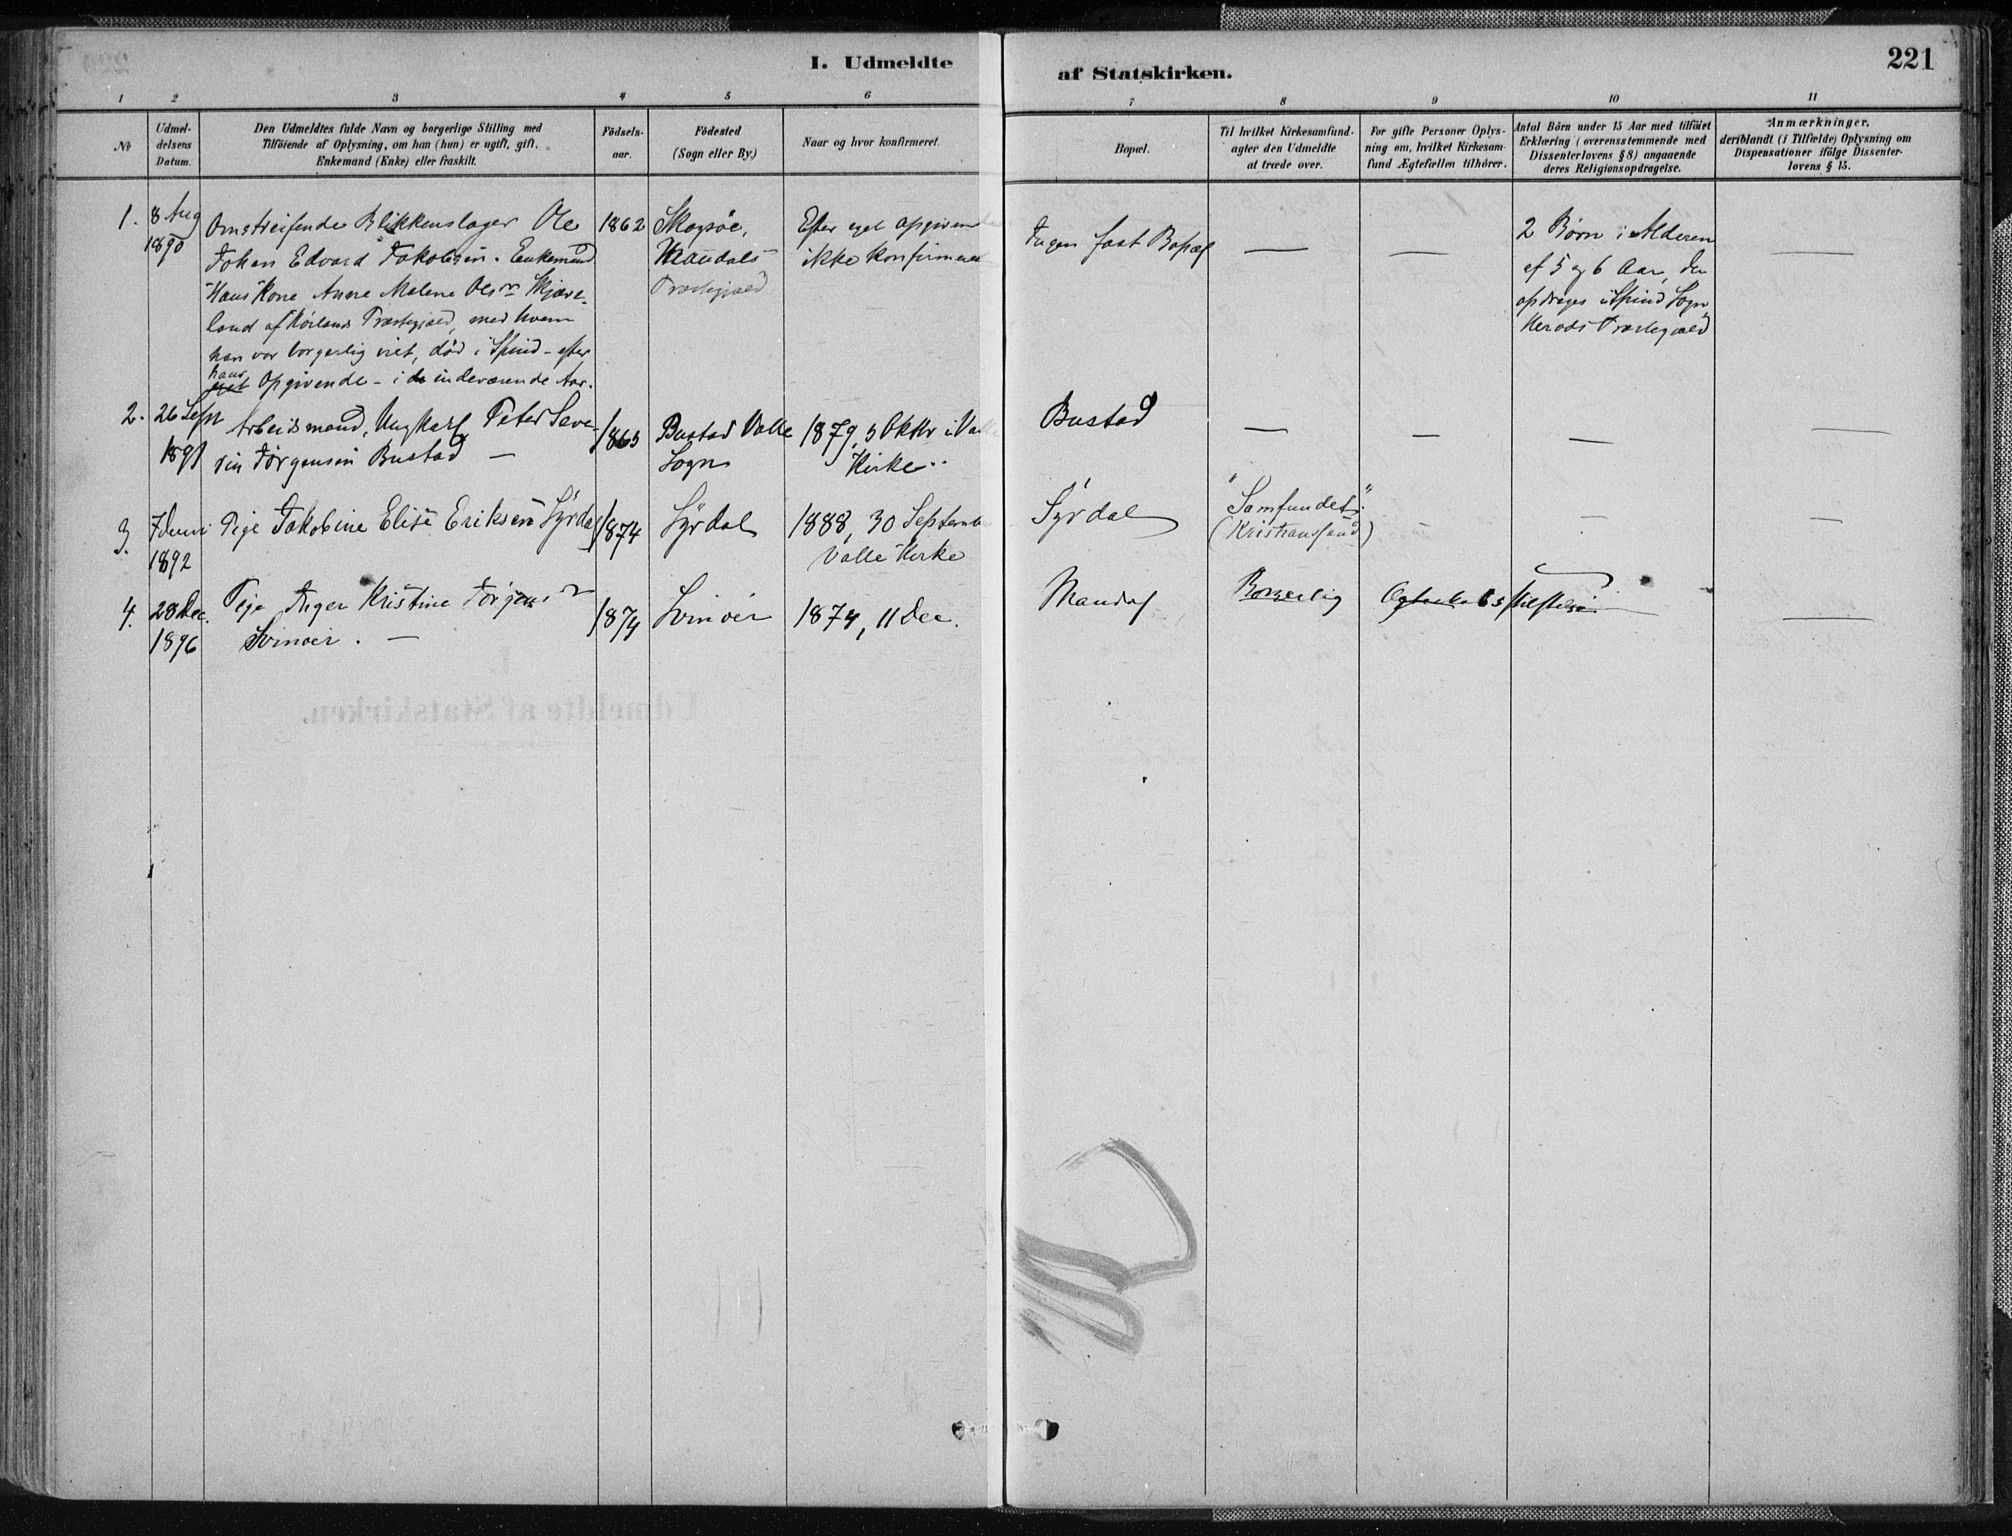 I. Udmeldte af Statskirken. 221
1 2 3 4 5 6 7 8 9 10 11
No
Udmel-
delsens
Datum.
Den Udmeldtes fulde Navn og borgerlige Stilling med
Tilføiende af Oplysning, om han (hun) er ugift, gift,
Enkemand (Enke) eller fraskilt.
Födsels-
aar.
Födested
(Sogn eller By.)
Naar og hvor konfirmeret
Bopæl.
Til hvilket Kirkesamfund-
agter den Udmeldte
at træde over.
For gifte Personer Oplys-
ning om, hvilket Kirkesam-
fund Ægtefællen tilhörer.
Antal Börn under 15 Aar med tilföiet
Erklæring (overensstemmende med
Dissenterlovens § 8) angaaende
deres Religionsopdragelse.
Anmærkninger,
deriblandt (i Tilfælde) Oplysning om
Dispensationer ifölge Dissenter-
lovens § 15.
1.
8 Aug
1890
Omstreifende Blikkenslager Ole
Johan Edvard Jakobsen. Enkemand
Hans Kone Anne Malene Olsn Skjæve-
land af Hörlands Præstegjæld, med hvem
han var borgerlig viet, död i Spind - efter
hans
eget Opgivende - i de indeværende Aar.
1862
Skogsöe,
Mandals
Præstegjæld
Efter eget Opgivend
ikke konfirmeret
Ingen fast Bopæl
—
—
2 Börn i Alderen
af 5 og 6 Aar, der
opdrages i Spind Sogn
Herads Præstegjæld
—
2.
26 Sept
1891
Arbeidsmand, Ungkarl Peter Seve-
rin Jörgensen Bustad —
1865
Bustad Valle
Sogn
1879, 5 Oktbr i Valle
Kirke..
Bustad
—
—
—
—
3.
7 Juni
1892
Pige Jakobine Elise Eriksen Syrdal
1874
Syrdal
1888, 30 Septemb
Valle Kirke
Syrdal
"Samfundet".
(Kristianssand)
—
—
—
4.
28 Dec.
1896
Pige Inger Kristine Jörgensn
Svinöer. —
1874
Svinöer
1874, 11 Dec.
Mandal
Borgerlig
—
I.
Udmeldte af Statskirken.